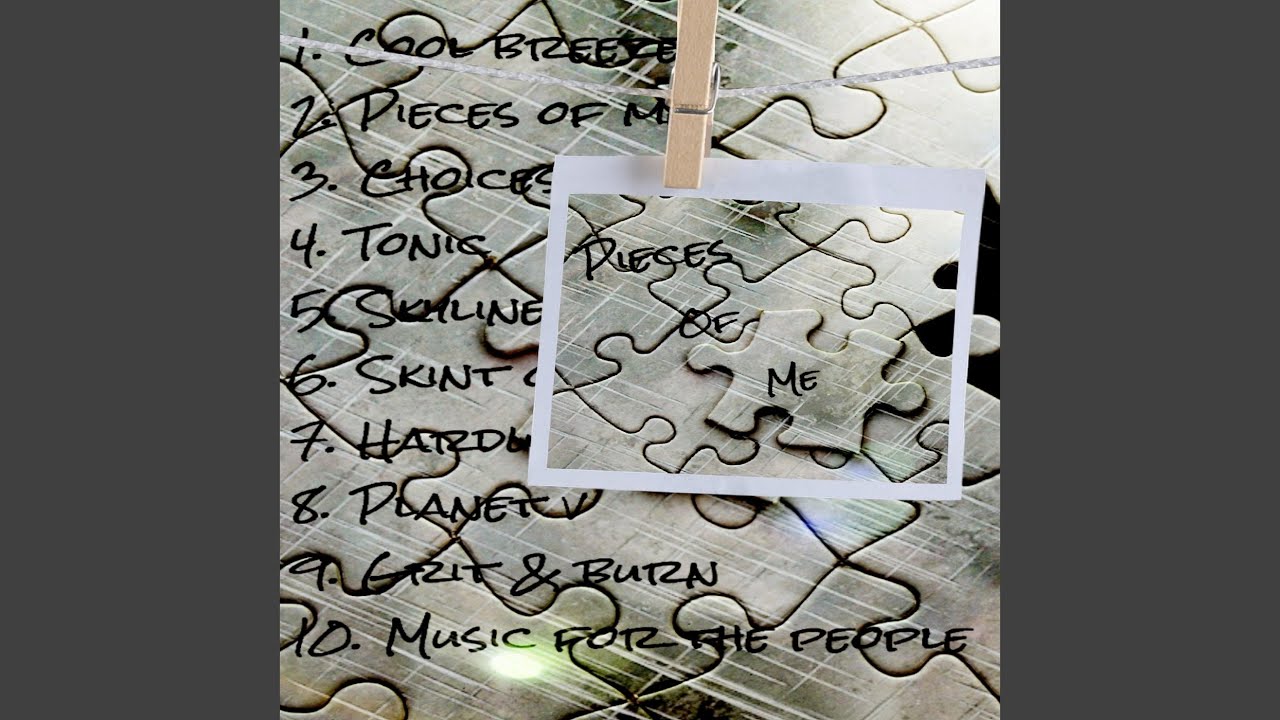 1. Cool breeze
2. Pieces of M
3. Choices
4. Tonic
5. Skyline
6. Skint
7. Hard
8. Planet V
9. Grit & burn
10. Music for the people
Pieces
of
Me